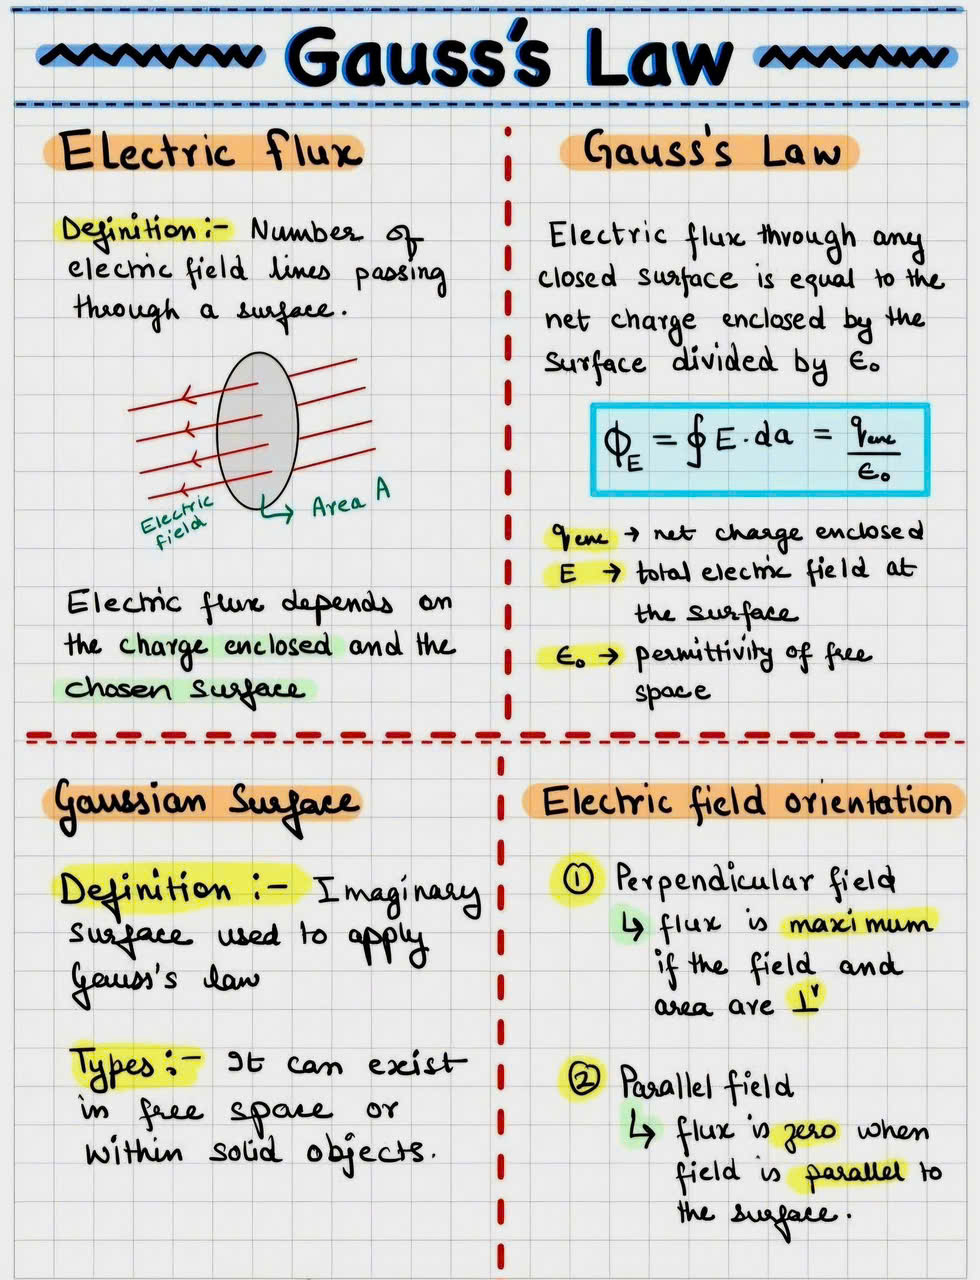 Gauss's Law
Electric flux
Definition :- Number of
electric field lines passing
through a surface.
Electric
field
Area A
Electric flux depends on
the charge enclosed and the
chosen surface
Gauss's Law
Electric flux through any
closed surface is equal to the
net charge enclosed by the
surface divided by ε₀
ϕ_E = ∮ E · da = q_enc / ε₀
q_enc → net charge enclosed
E → total electric field at
the surface
ε₀ → permittivity of free
space
Gaussian Surface
Definition :- Imaginary
surface used to apply
Gauss's law
Types :- It can exist
in free space or
within solid objects.
Electric field orientation
① Perpendicular field
↳ flux is maximum
if the field and
area are ⊥ʳ
② Parallel field
↳ flux is zero when
field is parallel to
the surface.